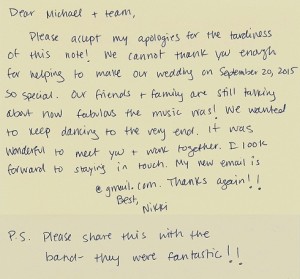 Dear Michael + team,
Please accept my apologies for the tardiness
of this note! We cannot thank you enough
for helping to make our wedding on September 20, 2015
so special. Our friends + family are still talking
about how fabulous the music was! We wanted
to keep dancing to the very end. It was
wonderful to meet you + work together. I look
forward to staying in touch. My new email is
@gmail.com. Thanks again!!
Best,
Nikki
P.S. Please share this with the
band- they were fantastic!!